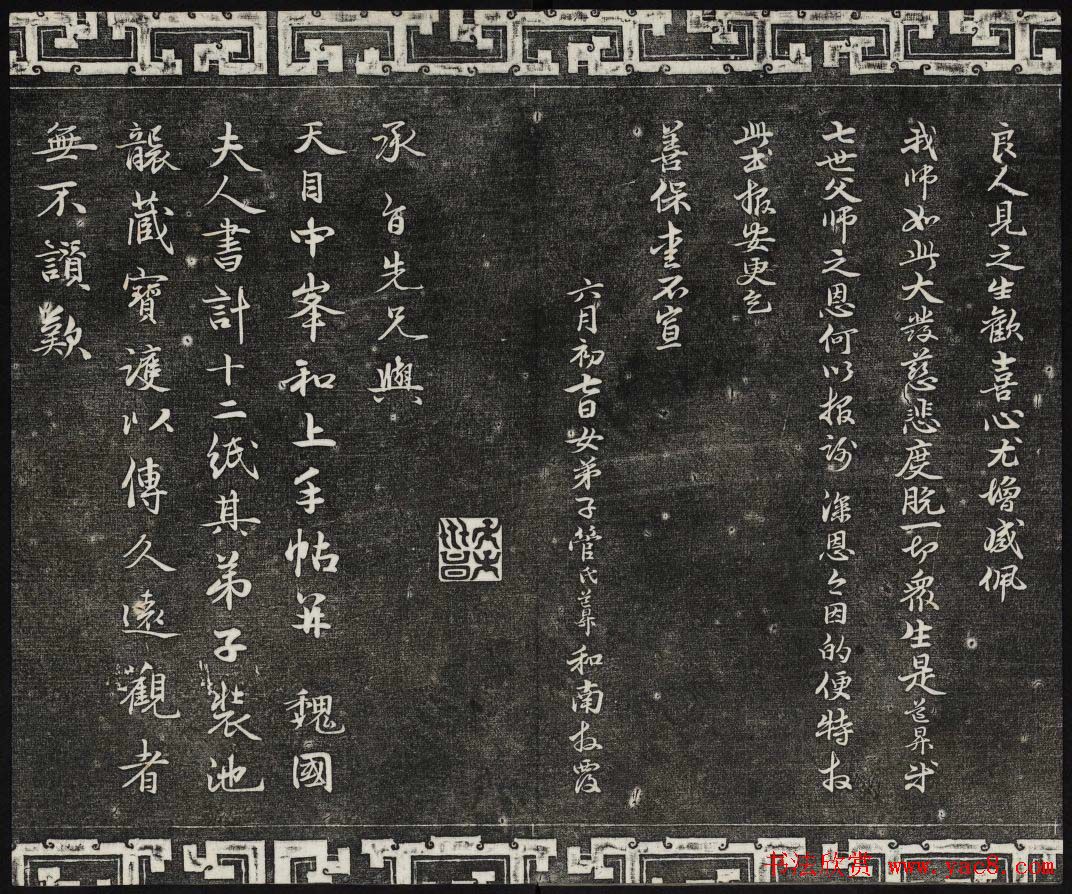 良人見之生歡喜心尤增感佩
我師如此大發慈悲度脫一切衆生是道昇成
七世父師之恩何以报谢 深恩今因的便特女
此上报安更乞
善保重不宣
六月初七日女弟子管氏道昇和南女覆
承旨先兄與
天目中峯和上手帖并 魏國
夫人書計十二紙其弟子裝池
襲藏寶護以傳久遠觀者
無不讚歎
书法欣赏 www.yac8.com